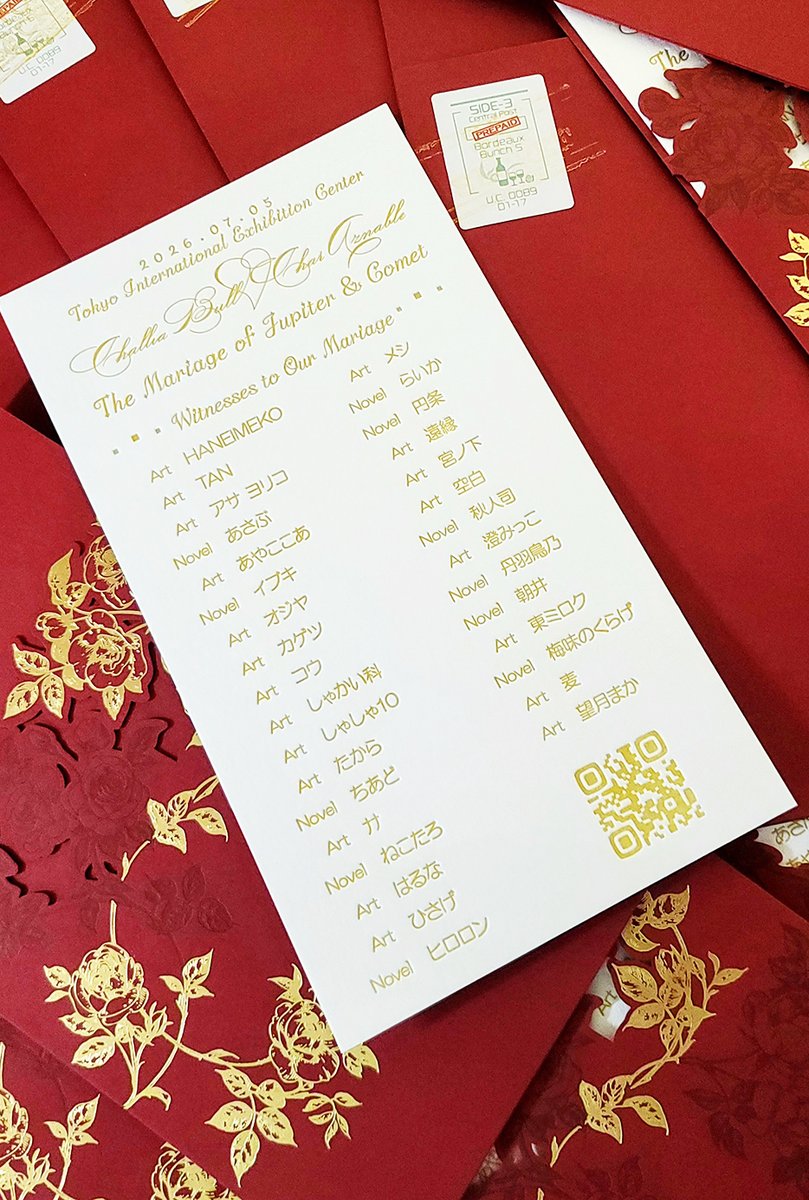 2026.07.05
Tokyo International Exhibition Center
Challia Bull Char Aznable
The Mariage of Jupiter & Comet
Witnesses to Our Mariage
Art HANEIMEKO
Art TAN
Art アサ ヨリコ
Novel あさぶ
Art あやここあ
Novel イブキ
Art オジヤ
Art カゲツ
Art コウ
Art しゃかい科
Art しゃしゃ10
Art たから
Novel ちあど
Art ナ
Novel ねこたろ
Art はるな
Art ひさげ
Novel ヒロロン
Art メシ
Novel らいか
Novel 円条
Art 遠縁
Art 宮ノ下
Art 空白
Novel 秋人司
Art 澄みっこ
Novel 丹羽鳥乃
Novel 朝井
Art 東ミロク
Novel 梅味のくらげ
Art 麦
Art 望月まか
SIDE-3
Central Post
PREPAID
Bordeaux
Bunch 5
U.C. 0089
01-17
U.C. 0089
01-17
The